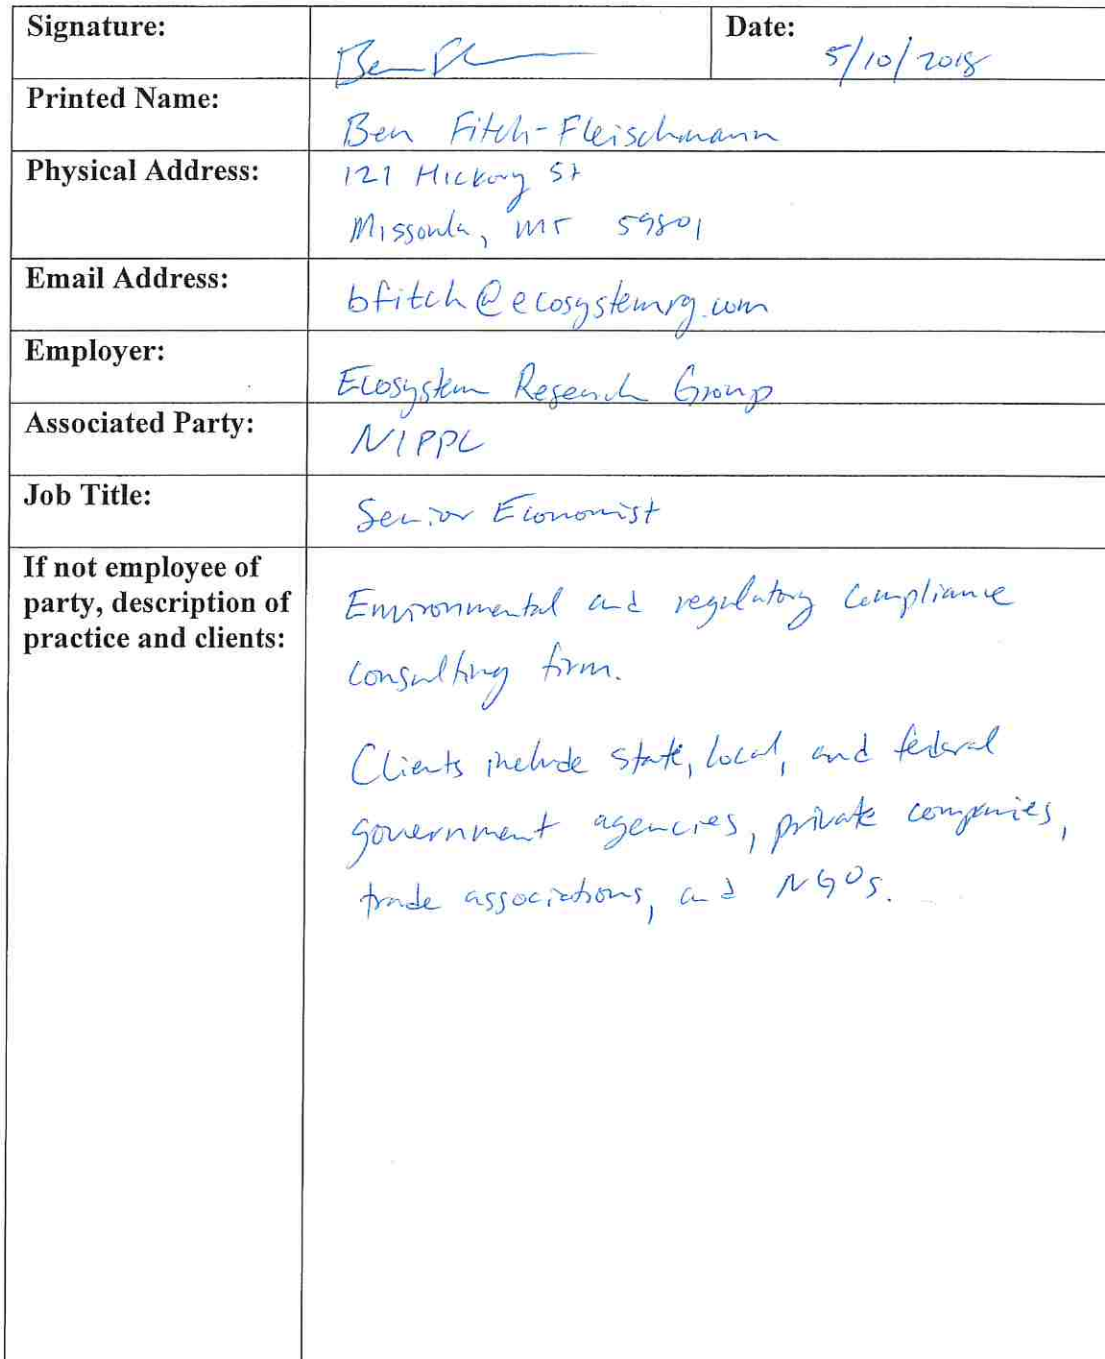 Signature: Date:
Ben 5/10/2018
Printed Name:
Ben Fitch-Fleischmann
Physical Address: 121 Hickory St
Missoula, MT 59801
Email Address:
bfitch@ecosystemrg.com
Employer:
Ecosystem Research Group
Associated Party:
NIPPC
Job Title:
Senior Economist
If not employee of
party, description of
practice and clients:
Environmental and regulatory compliance
consulting firm.
Clients include state, local, and federal
government agencies, private companies,
trade associations, and NGOs.